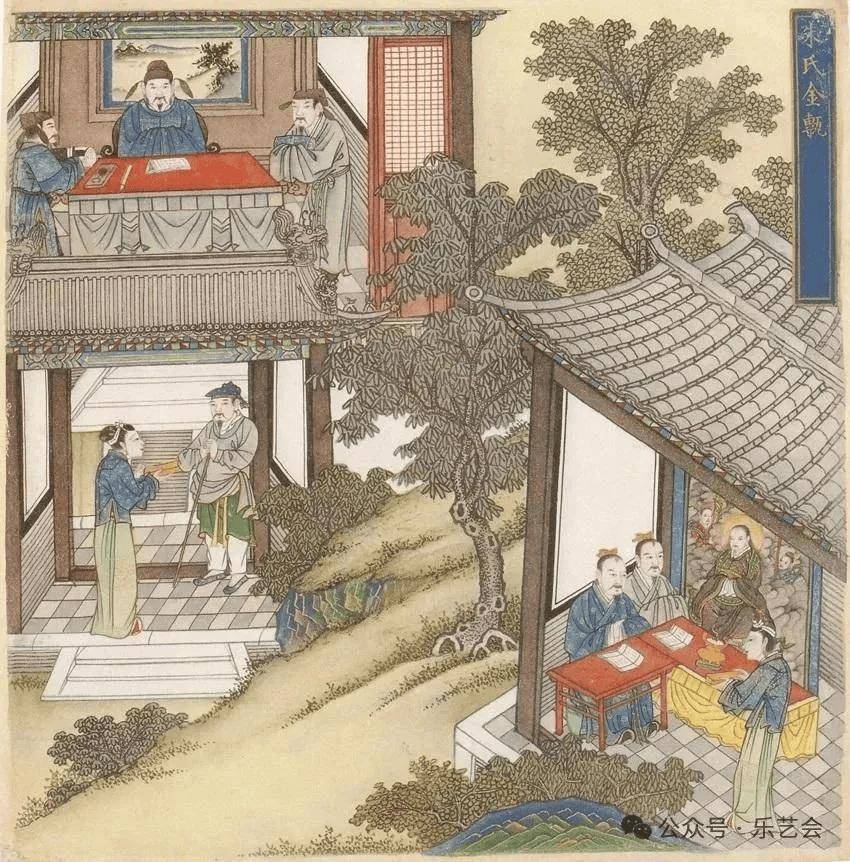 氏金甎
公众号·乐艺会